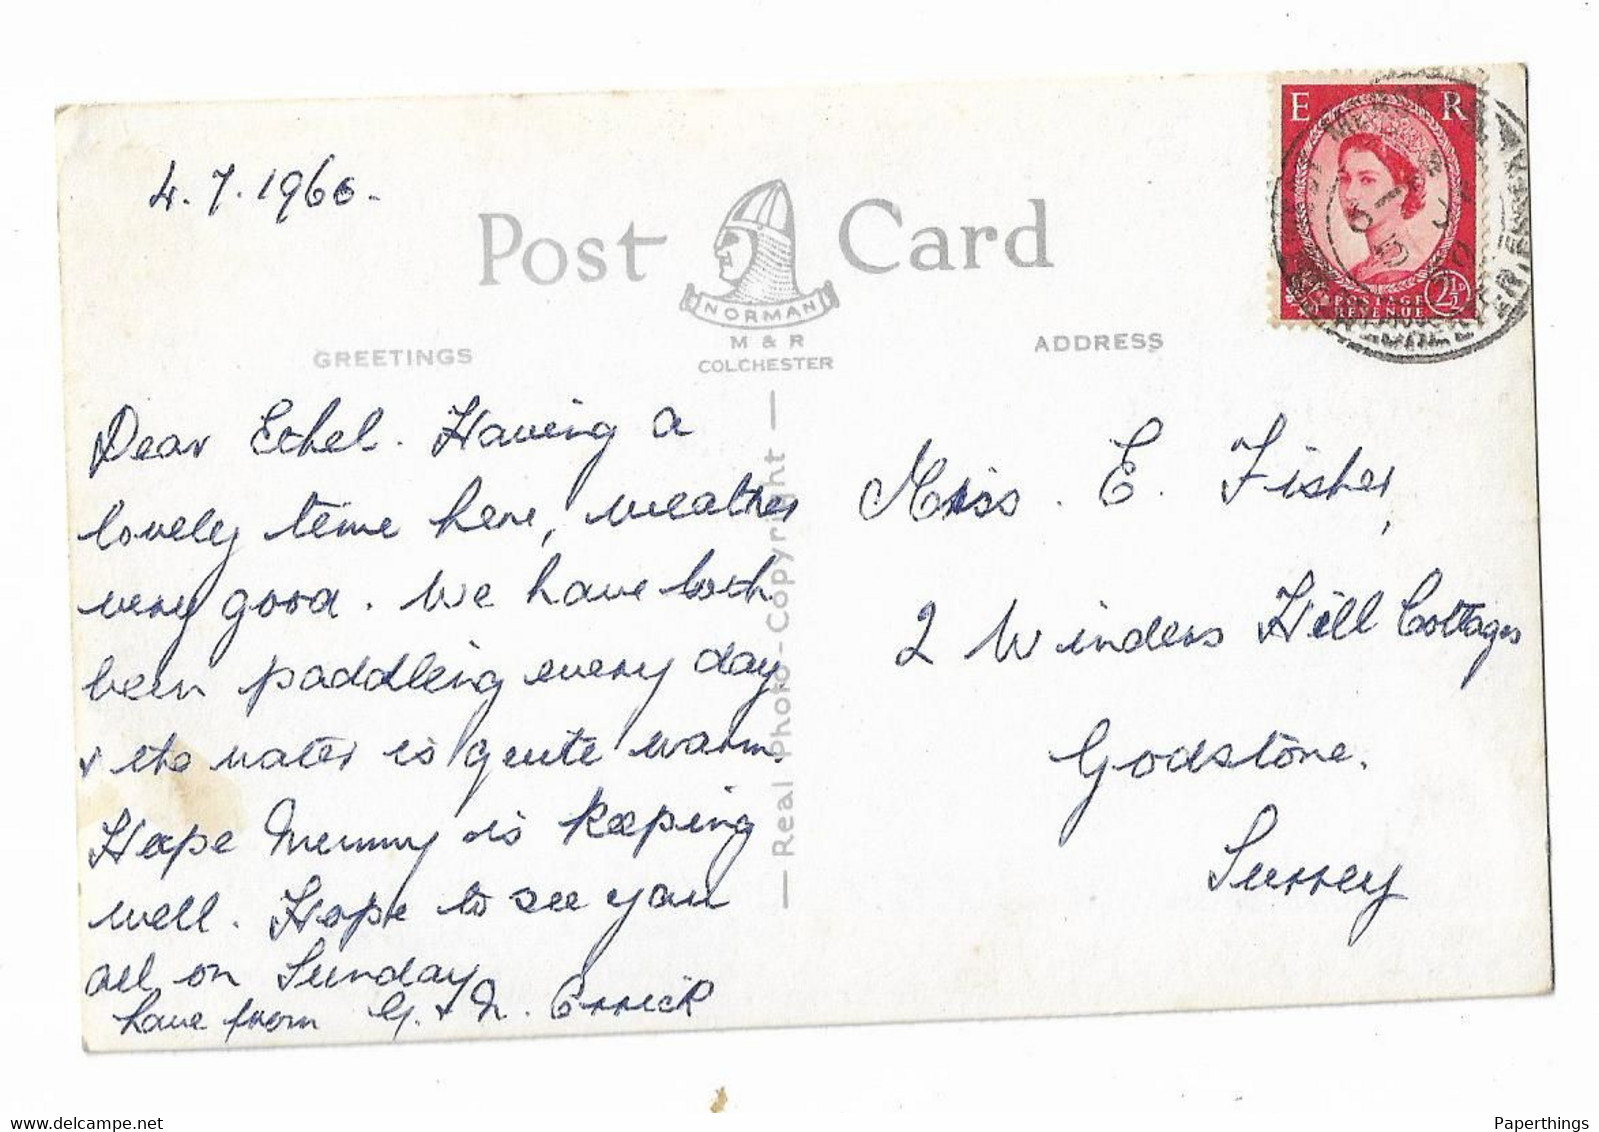 4.7.1960.
Post Card
NORMAN
M & R
COLCHESTER
GREETINGS
ADDRESS
E R
POSTAGE
REVENUE
2½D
Dear Ethel. Having a
lovely time here, weather
very good. We have both
been paddling every day
& the water is quite warm.
Hope Mummy is keeping
well. Hope to see you
all on Sunday
love from G. & N. Errick
— Real Photo-Copyright —
Miss. E. Fisher,
2 Winders Hill Cottages
Godstone.
Surrey
Paperthings